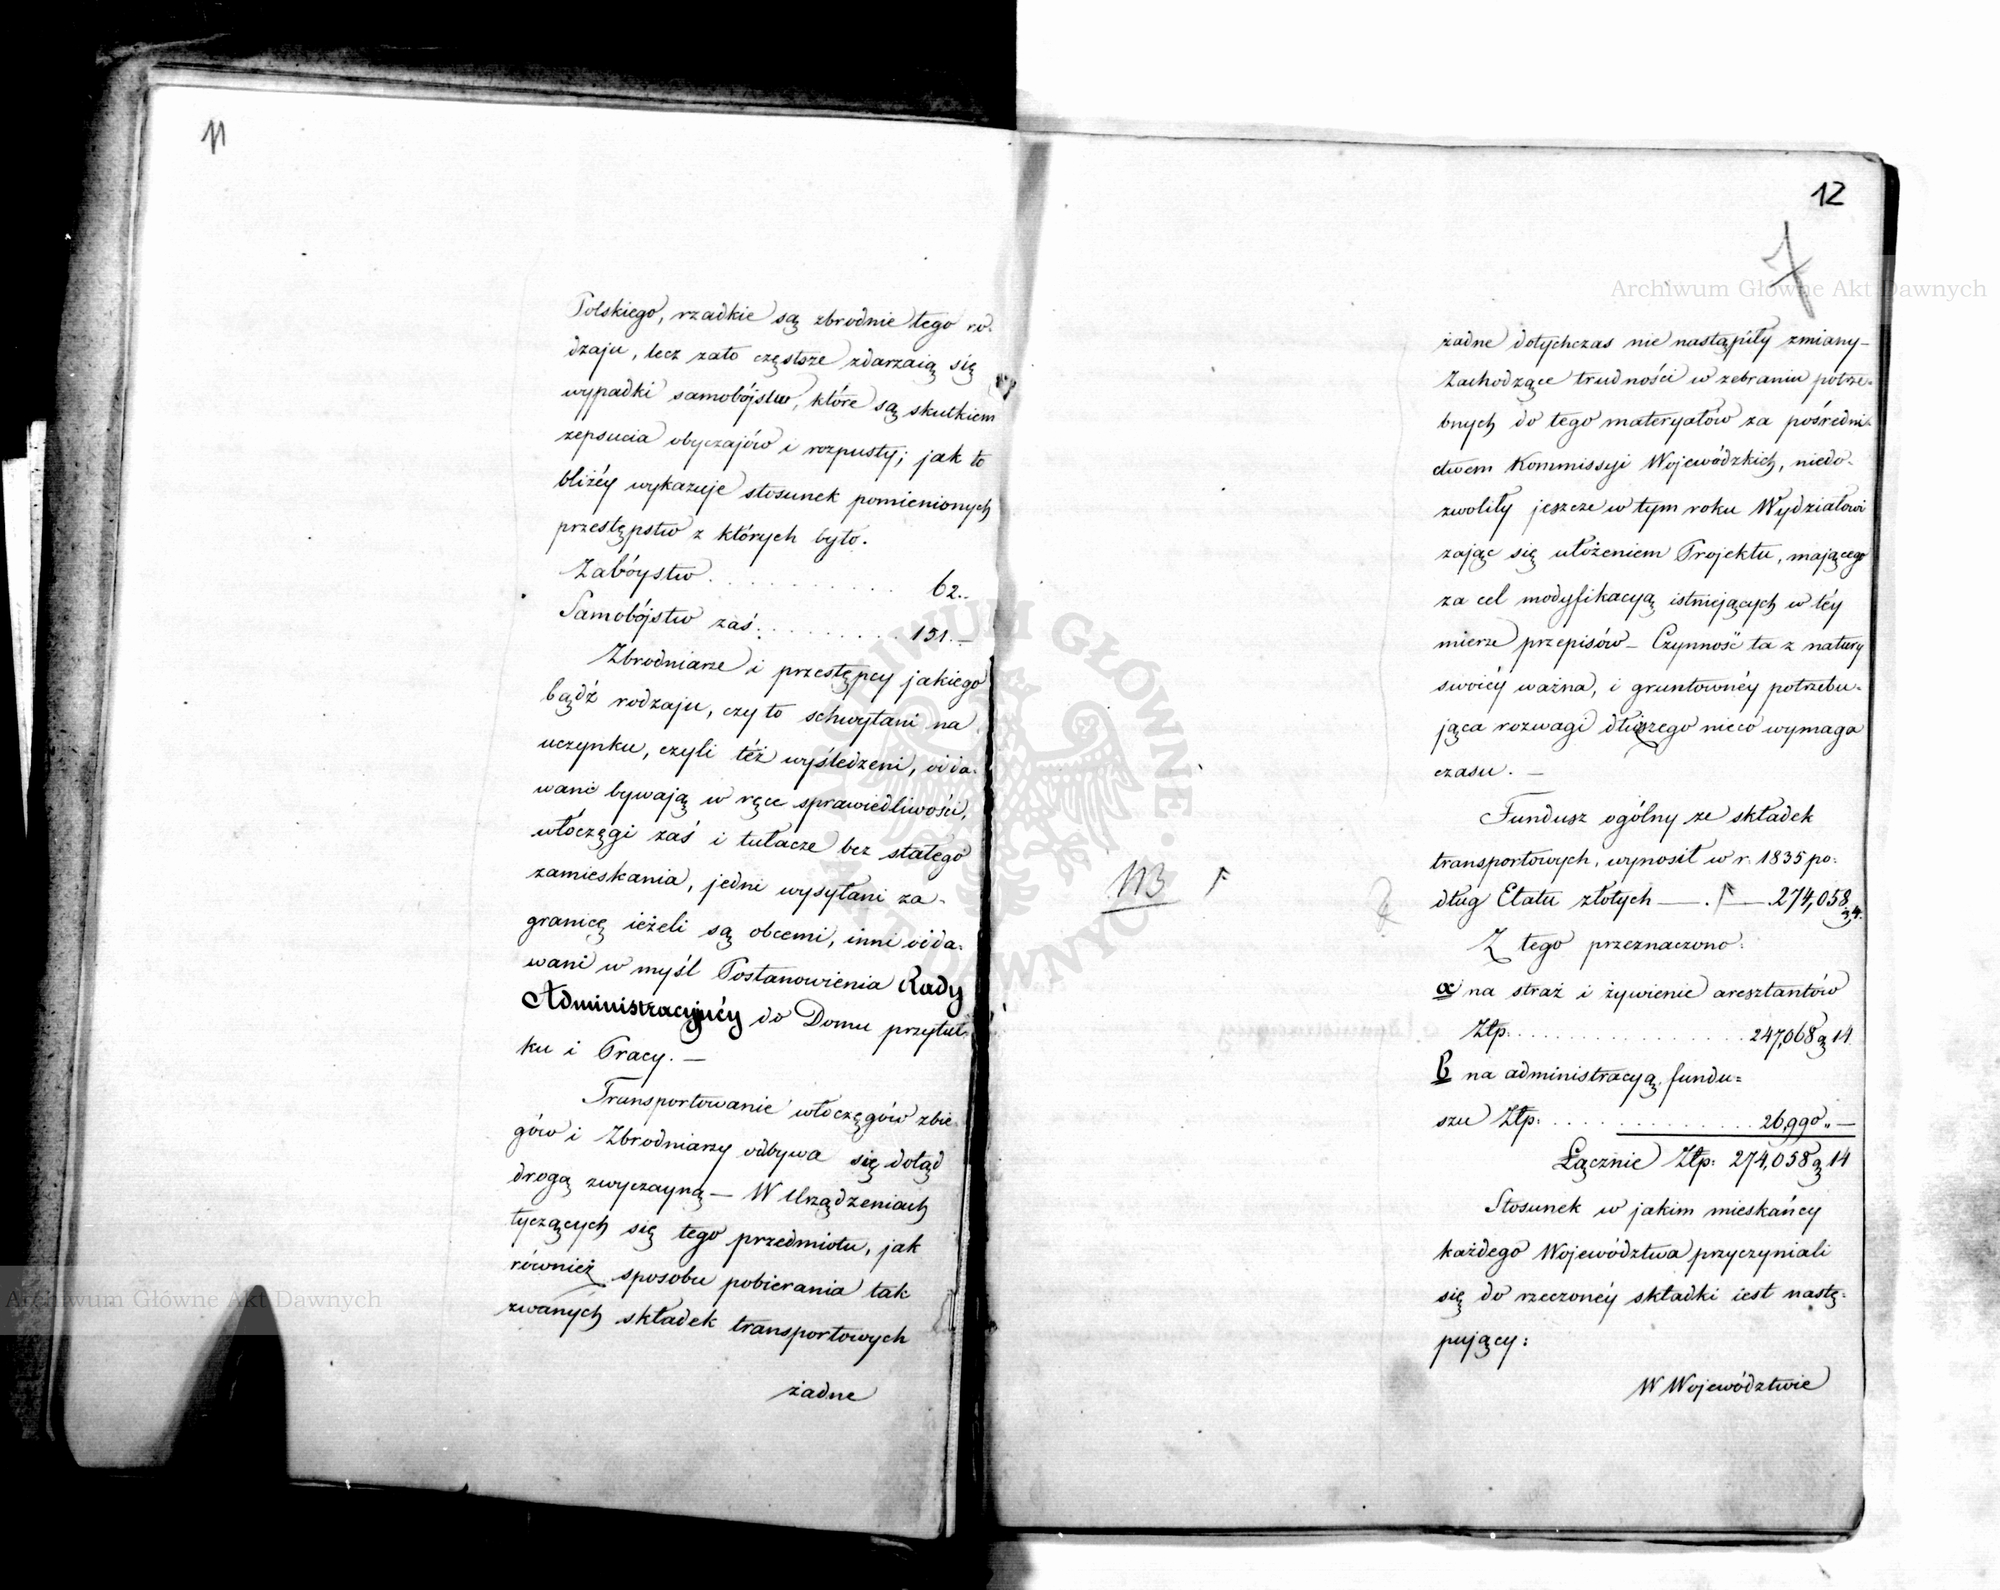 11
Polskiego, rzadkie są zbrodnie tego ro-
dzaju, lecz zato częstsze zdarzaią się
wypadki samobójstw, które są skutkiem
zepsucia obyczajów i rozpusty; jak to
bliżéy wykazuje stosunek pomienionych
przestępstw z których było.
Zabóystw . . . . . . . . . . 62.„
Samobójstw zaś . . . . . . . . . 151. —
Zbrodniarze i przestępcy jakiego
bądź rodzaju, czy to schwytani na
uczynku, czyli téż wyśledzeni, odda-
wani bywają w ręce sprawiedliwości,
włóczęgi zaś i tułacze bez stałego
zamieskania, jedni wysyłani za-
granicę ieżeli są obcemi, inni odda-
wani w myśl Postanowienia Rady
Administracyjnéy do Domu przytuł-
ku i Pracy. —
Transportowanie włóczęgów zbie-
gów i Zbrodniarzy odbywa się dotąd
drogą zwyczayną — W Urządzeniach
tyczących się tego przedmiotu, jak
również sposobu pobierania tak
zwanych składek transportowych
żadne
12
7
żadne dotychczas nie nastąpiły zmiany —
Zachodzące trudności w zebraniu potrze-
bnych do tego materyałów za pośredni-
ctwem Kommissyi Wojewódzkich, niedo-
zwoliły jeszcze w tym roku Wydziałowi
zająć się ułożeniem Projektu, mającego
za cel modyfikacyą istniejących w téy
mierze przepisów — Czynność ta z natury
swoiéy ważna, i gruntownéy potrzebu-
jąca rozwagi dłuższego nieco wymaga
czasu. —
Fundusz ogólny ze składek
transportowych, wynosił w r. 1835 po-
dług Etatu złotych — . — 274,058
NB
Z tego przeznaczono:
a na straż i żywienie aresztantów
Złp. . . . . . . . . . . . . 247,068 g 14
b na administracyą fundu-
szu Złp: . . . . . . . . . . . . 26,990 „ —
Łącznie Złp: 274,058 g 14
Stosunek w jakim mieskańcy
każdego Województwa przyczyniali
się do rzeczonéy składki iest nastę-
pujący:
W Województwie
Archiwum Główne Akt Dawnych
Archiwum Główne Akt Dawnych
ARCHIWUM GŁÓWNE AKT DAWNYCH